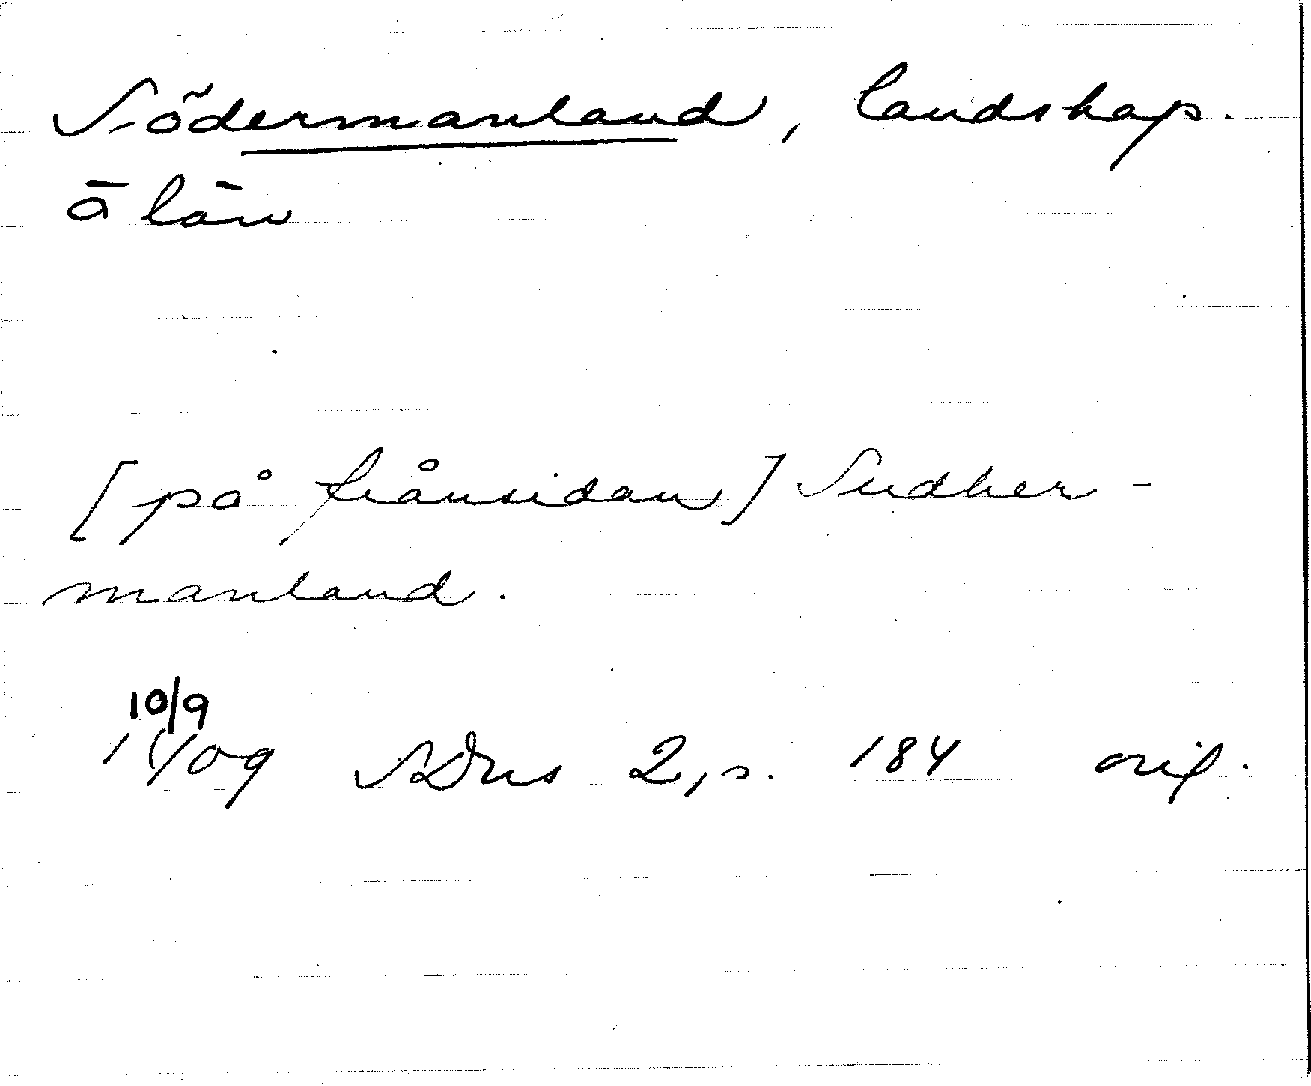 Södermanland, landskap.
ä län
[på frånsidan] Sudher-
manland.
10/9
1409 SDns 2, s. 184 orig.